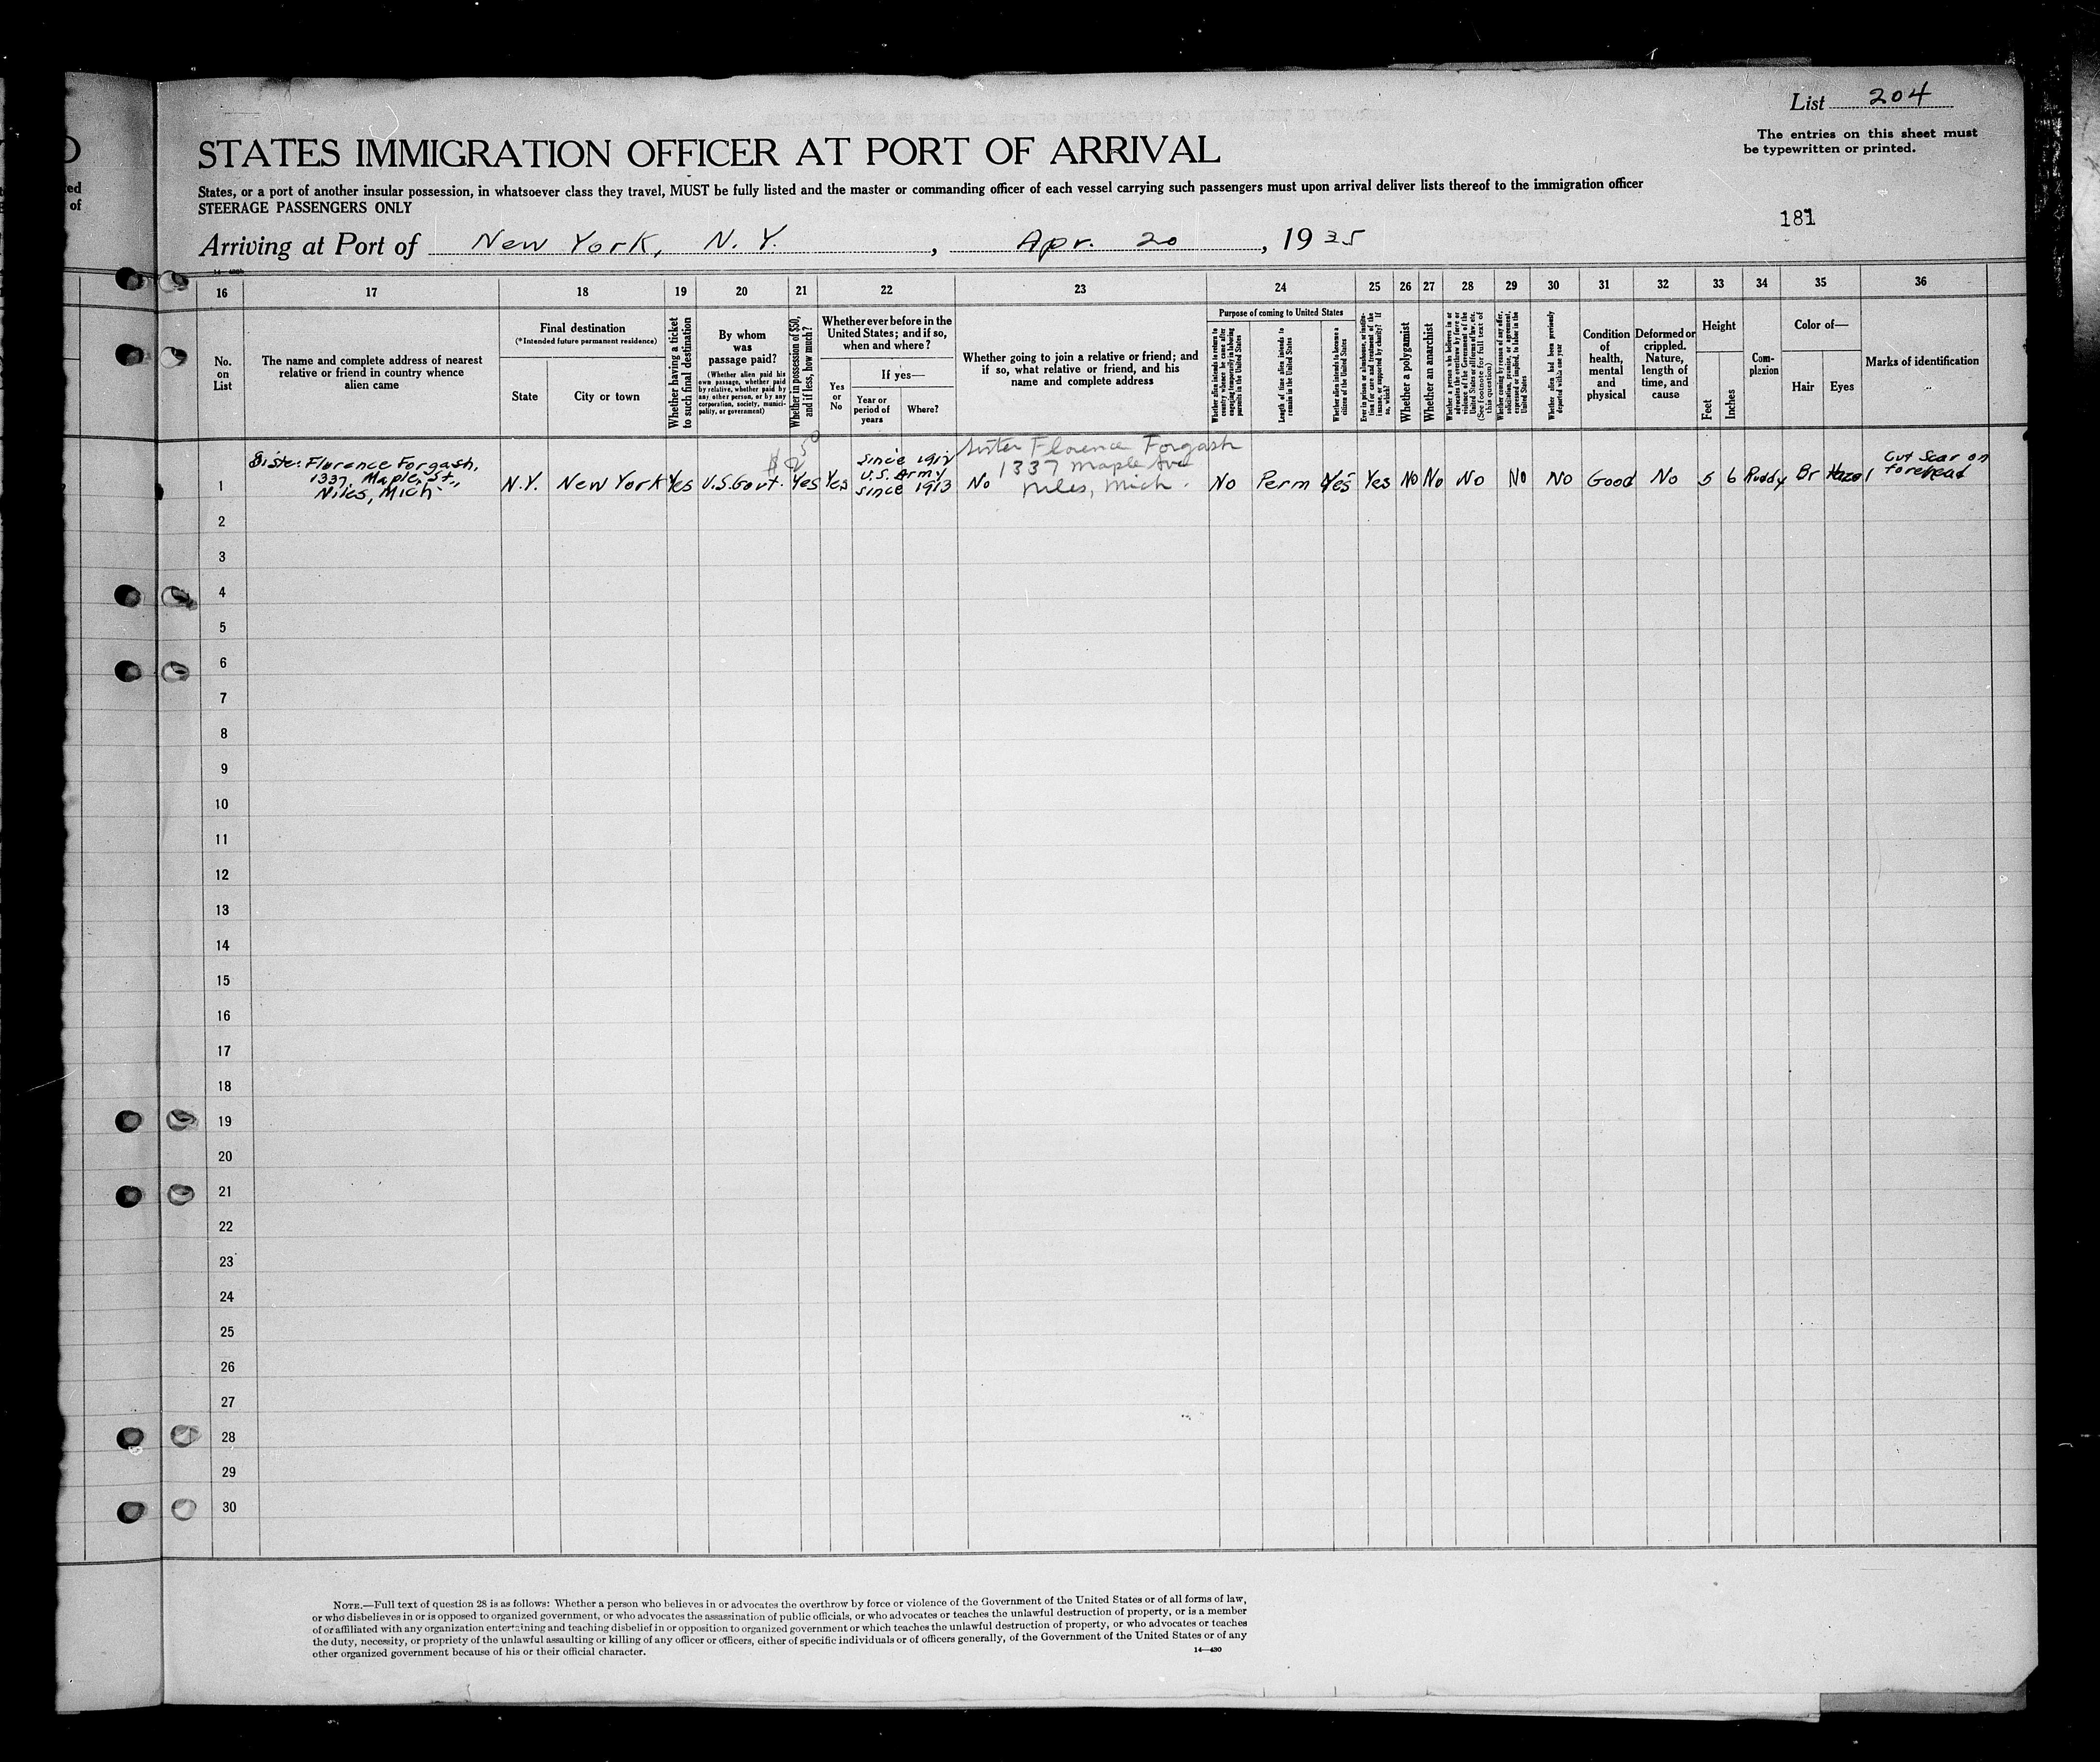 List 204
The entries on this sheet must
be typewritten or printed.
STATES IMMIGRATION OFFICER AT PORT OF ARRIVAL
States, or a port of another insular possession, in whatsoever class they travel, MUST be fully listed and the master or commanding officer of each vessel carrying such passengers must upon arrival deliver lists thereof to the immigration officer
STEERAGE PASSENGERS ONLY
181
Arriving at Port of New York, N. Y. , Apr. 20 , 1935
16 17 18 19 20 21 22 23 24 25 26 27 28 29 30 31 32 33 34 35 36
No.
on
List
The name and complete address of nearest
relative or friend in country whence
alien came
Final destination
(*Intended future permanent residence)
State
City or town
Whether having a ticket
to such final destination
By whom
was
passage paid?
(Whether alien paid his
own passage, whether paid
by relative, whether paid by
any other person, or by any
corporation, society, munici-
pality, or government)
Whether in possession of $50,
and if less, how much?
Whether ever before in the
United States; and if so,
when and where?
Yes
or
No
If yes—
Year or
period of
years
Where?
Whether going to join a relative or friend; and
if so, what relative or friend, and his
name and complete address
Purpose of coming to United States
Whether alien intends to return to
country whence he came after
engaging temporarily in laboring
pursuits in the United States
Length of time alien intends to
remain in the United States
Whether alien intends to become a
citizen of the United States
Ever in prison or almshouse, or institu-
tion for care and treatment of the
insane, or supported by charity? If
so, which?
Whether a polygamist
Whether an anarchist
Whether a person who believes in or
advocates the overthrow by force or
violence of the Government of the
United States or all forms of law, etc.
(See footnote for full text of
this question)
Whether coming by reason of any offer,
solicitation, promise, or agreement,
expressed or implied, to labor in the
United States
Whether alien had been previously
deported within one year
Condition
of
health,
mental
and
physical
Deformed or
crippled.
Nature,
length of
time, and
cause
Height
Feet
Inches
Com-
plexion
Color of—
Hair
Eyes
Marks of identification
1
Sister Florence Forgash,
1337, Maple, St.,
Niles, Mich.
N.Y. New York Yes U.S.Govt. Yes Yes
$ 50
since 1912
U.S. Army
since 1913
Sister Florence Forgash
1337 Maple Ave
No Niles, Mich.
No Perm Yes Yes No No No No No Good No 5 6 Ruddy Br Hazel
Cut Scar on
forehead
2
3
4
5
6
7
8
9
10
11
12
13
14
15
16
17
18
19
20
21
22
23
24
25
26
27
28
29
30
NOTE.—Full text of question 28 is as follows: Whether a person who believes in or advocates the overthrow by force or violence of the Government of the United States or of all forms of law,
or who disbelieves in or is opposed to organized government, or who advocates the assassination of public officials, or who advocates or teaches the unlawful destruction of property, or is a member
of or affiliated with any organization entertaining and teaching disbelief in or opposition to organized government or which teaches the unlawful destruction of property, or who advocates or teaches
the duty, necessity, or propriety of the unlawful assaulting or killing of any officer or officers, either of specific individuals or of officers generally, of the Government of the United States or of any
other organized government because of his or their official character.
14—430